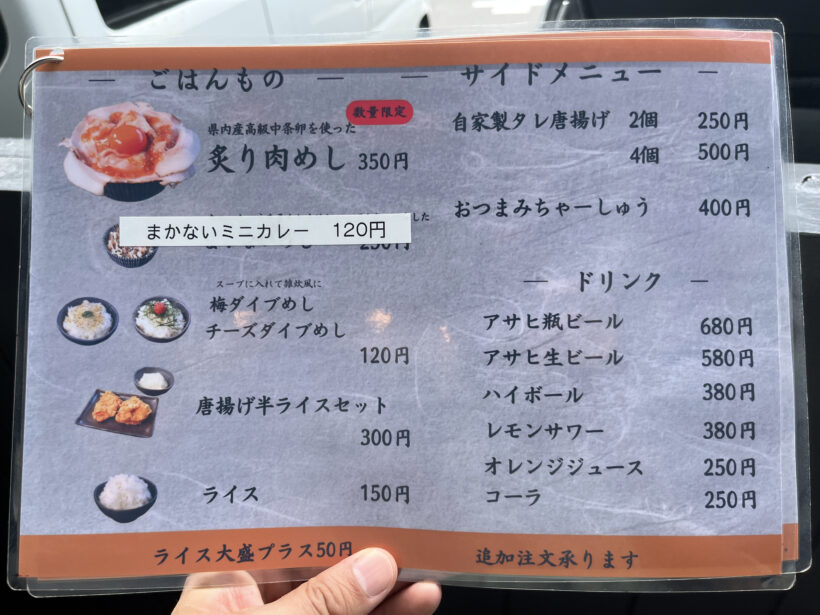 ごはんもの
数量限定
県内産高級中条卵を使った
炙り肉めし 350円
した
まかないミニカレー 120円
スープに入れて雑炊風に
梅ダイブめし
チーズダイブめし
120円
唐揚げ半ライスセット
300円
ライス 150円
ライス大盛プラス50円
サイドメニュー
自家製タレ唐揚げ 2個 250円
4個 500円
おつまみちゃーしゅう 400円
ドリンク
アサヒ瓶ビール 680円
アサヒ生ビール 580円
ハイボール 380円
レモンサワー 380円
オレンジジュース 250円
コーラ 250円
追加注文承ります